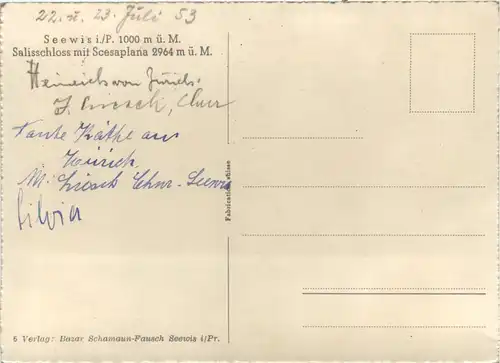 22. u. 23. Juli 53
Seewis i/P. 1000 m ü. M.
Salisschloss mit Scesaplana 2964 m ü. M.
Heinrichs von Zürich.
J. Chur
Tante Käthe aus
Zürich.
M. Chur-Seewis
Silvia
Fabrication Suisse
6 Verlag: Bazar Schamaun-Fausch Seewis i/Pr.